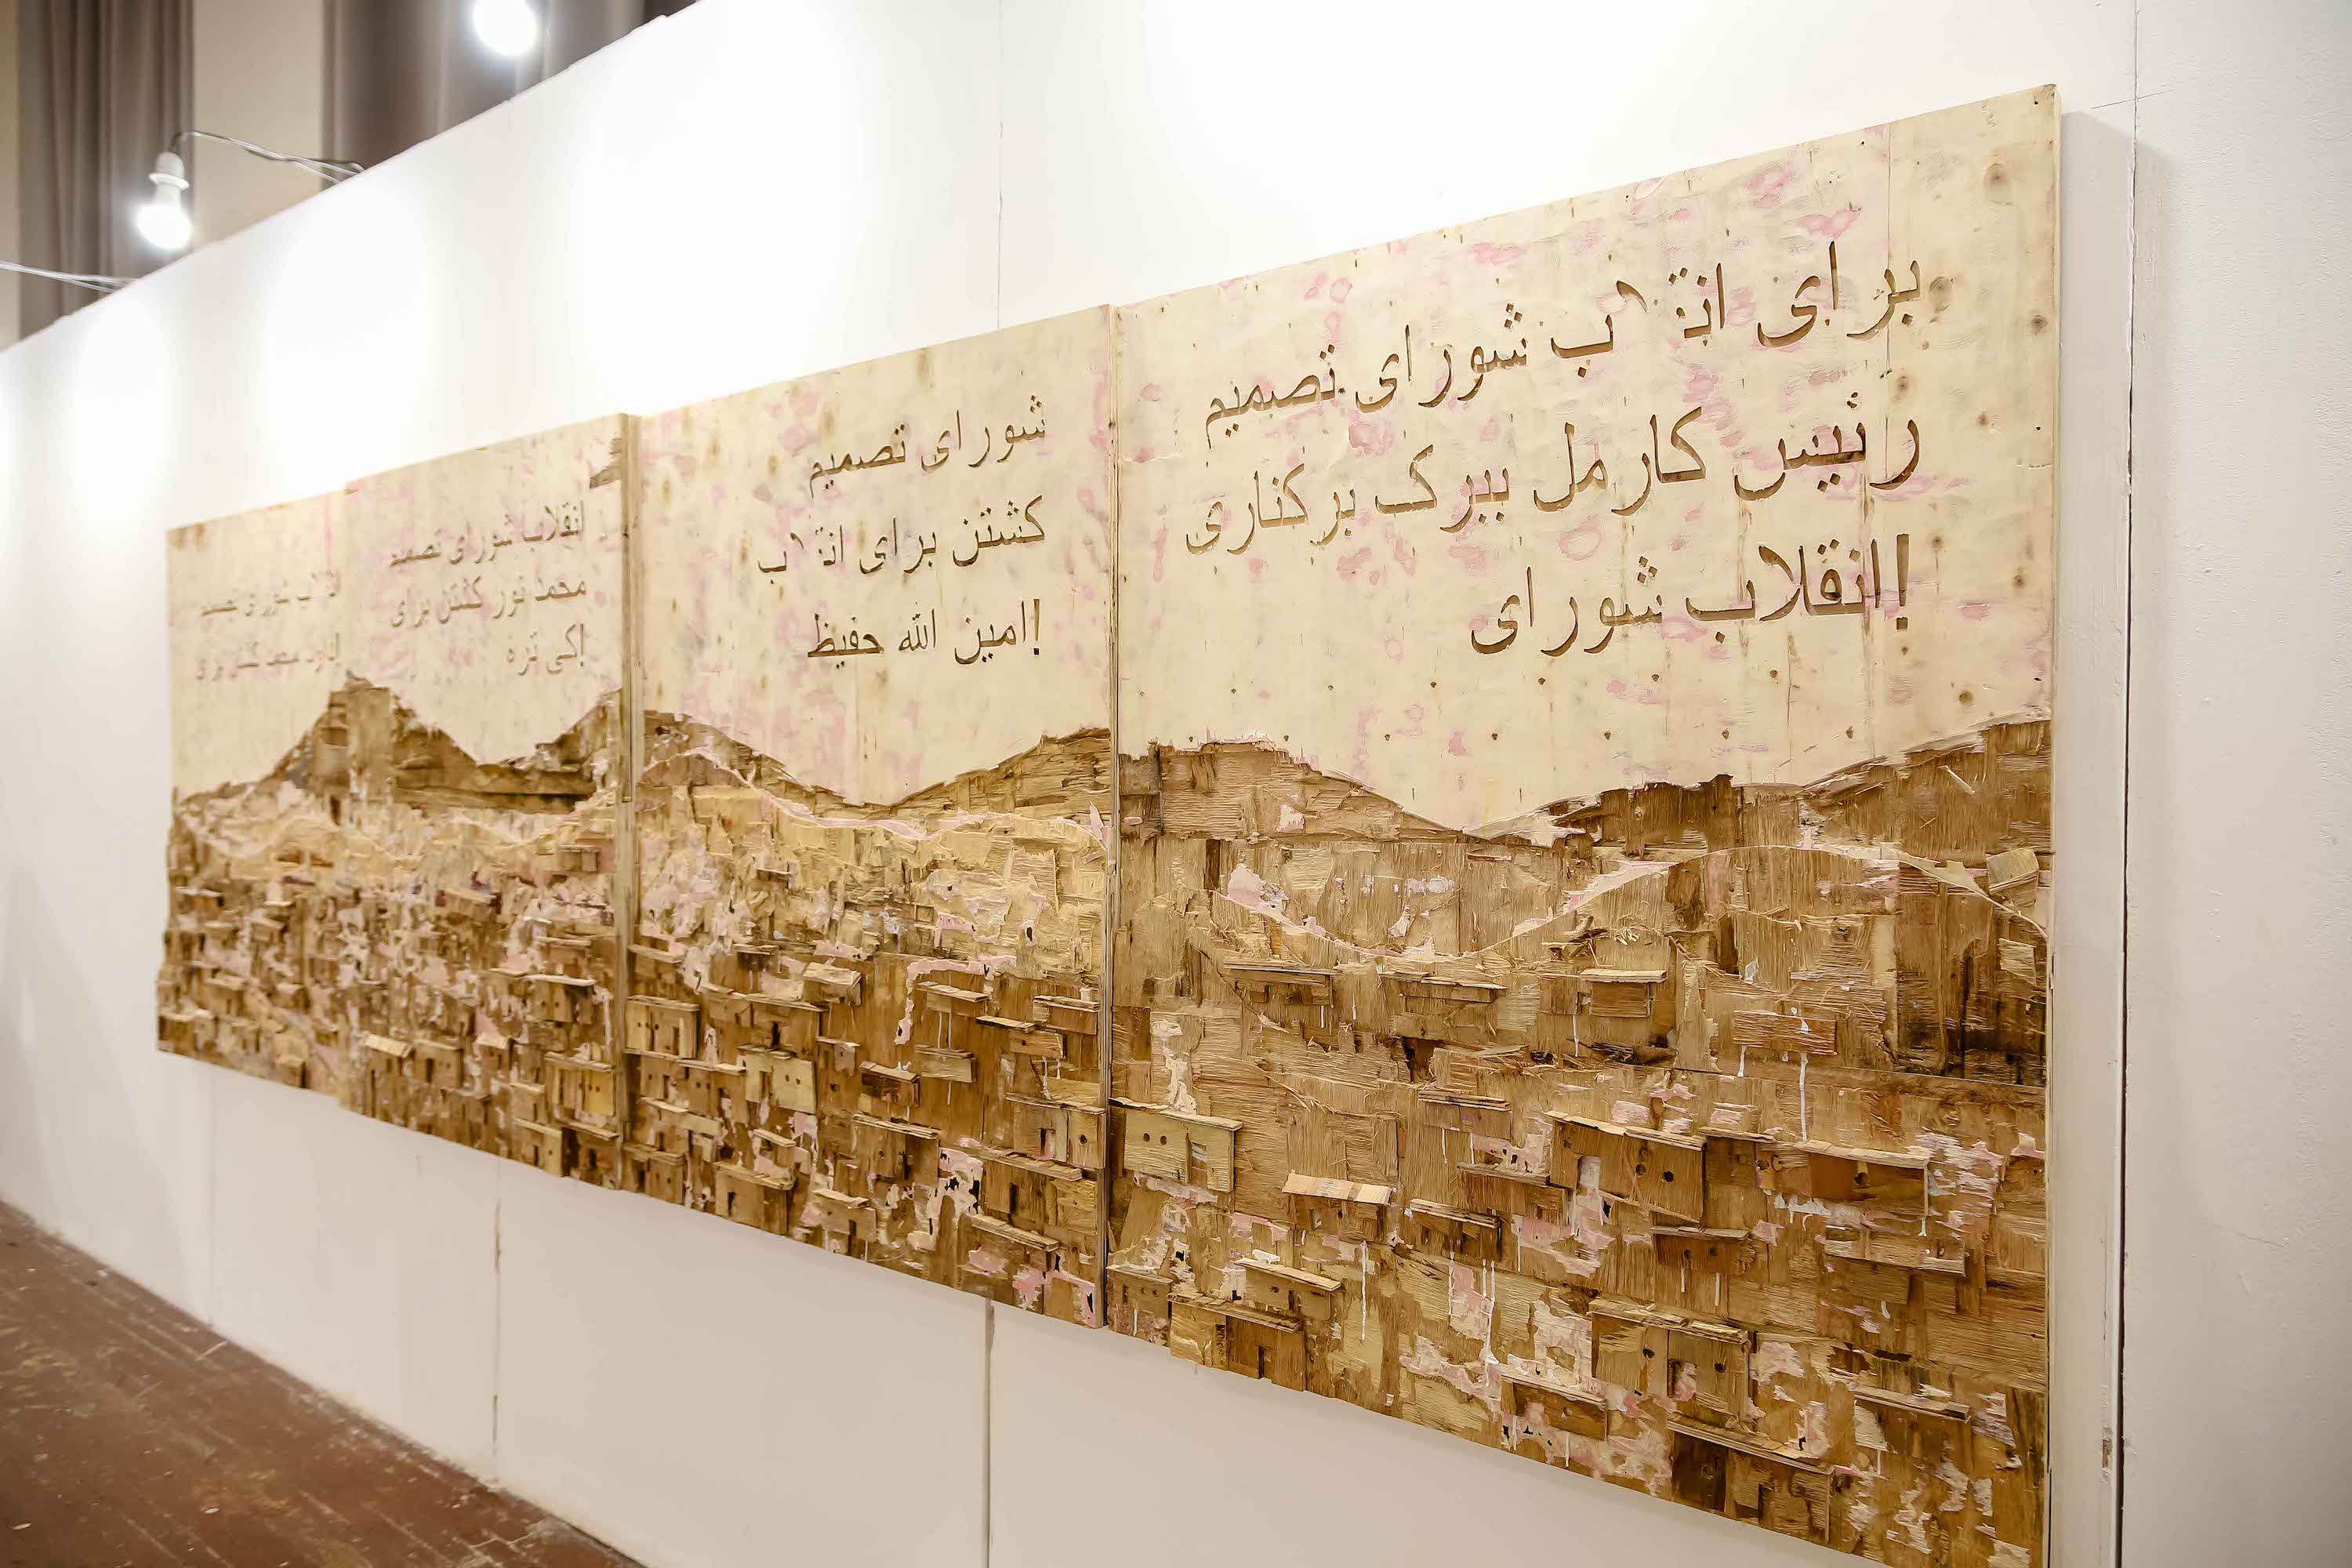 برای انقلاب شورای تصمیم
رئیس کارمل ببرک برکناری
!انقلاب شورای
شورای تصمیم
کشتن برای انقلاب
!امین الله حفیظ
انقلاب شورای تصمیم
محمد نور کشتن برای
!کی تره
انقلاب شورای تصمیم
محمد کشتن برای